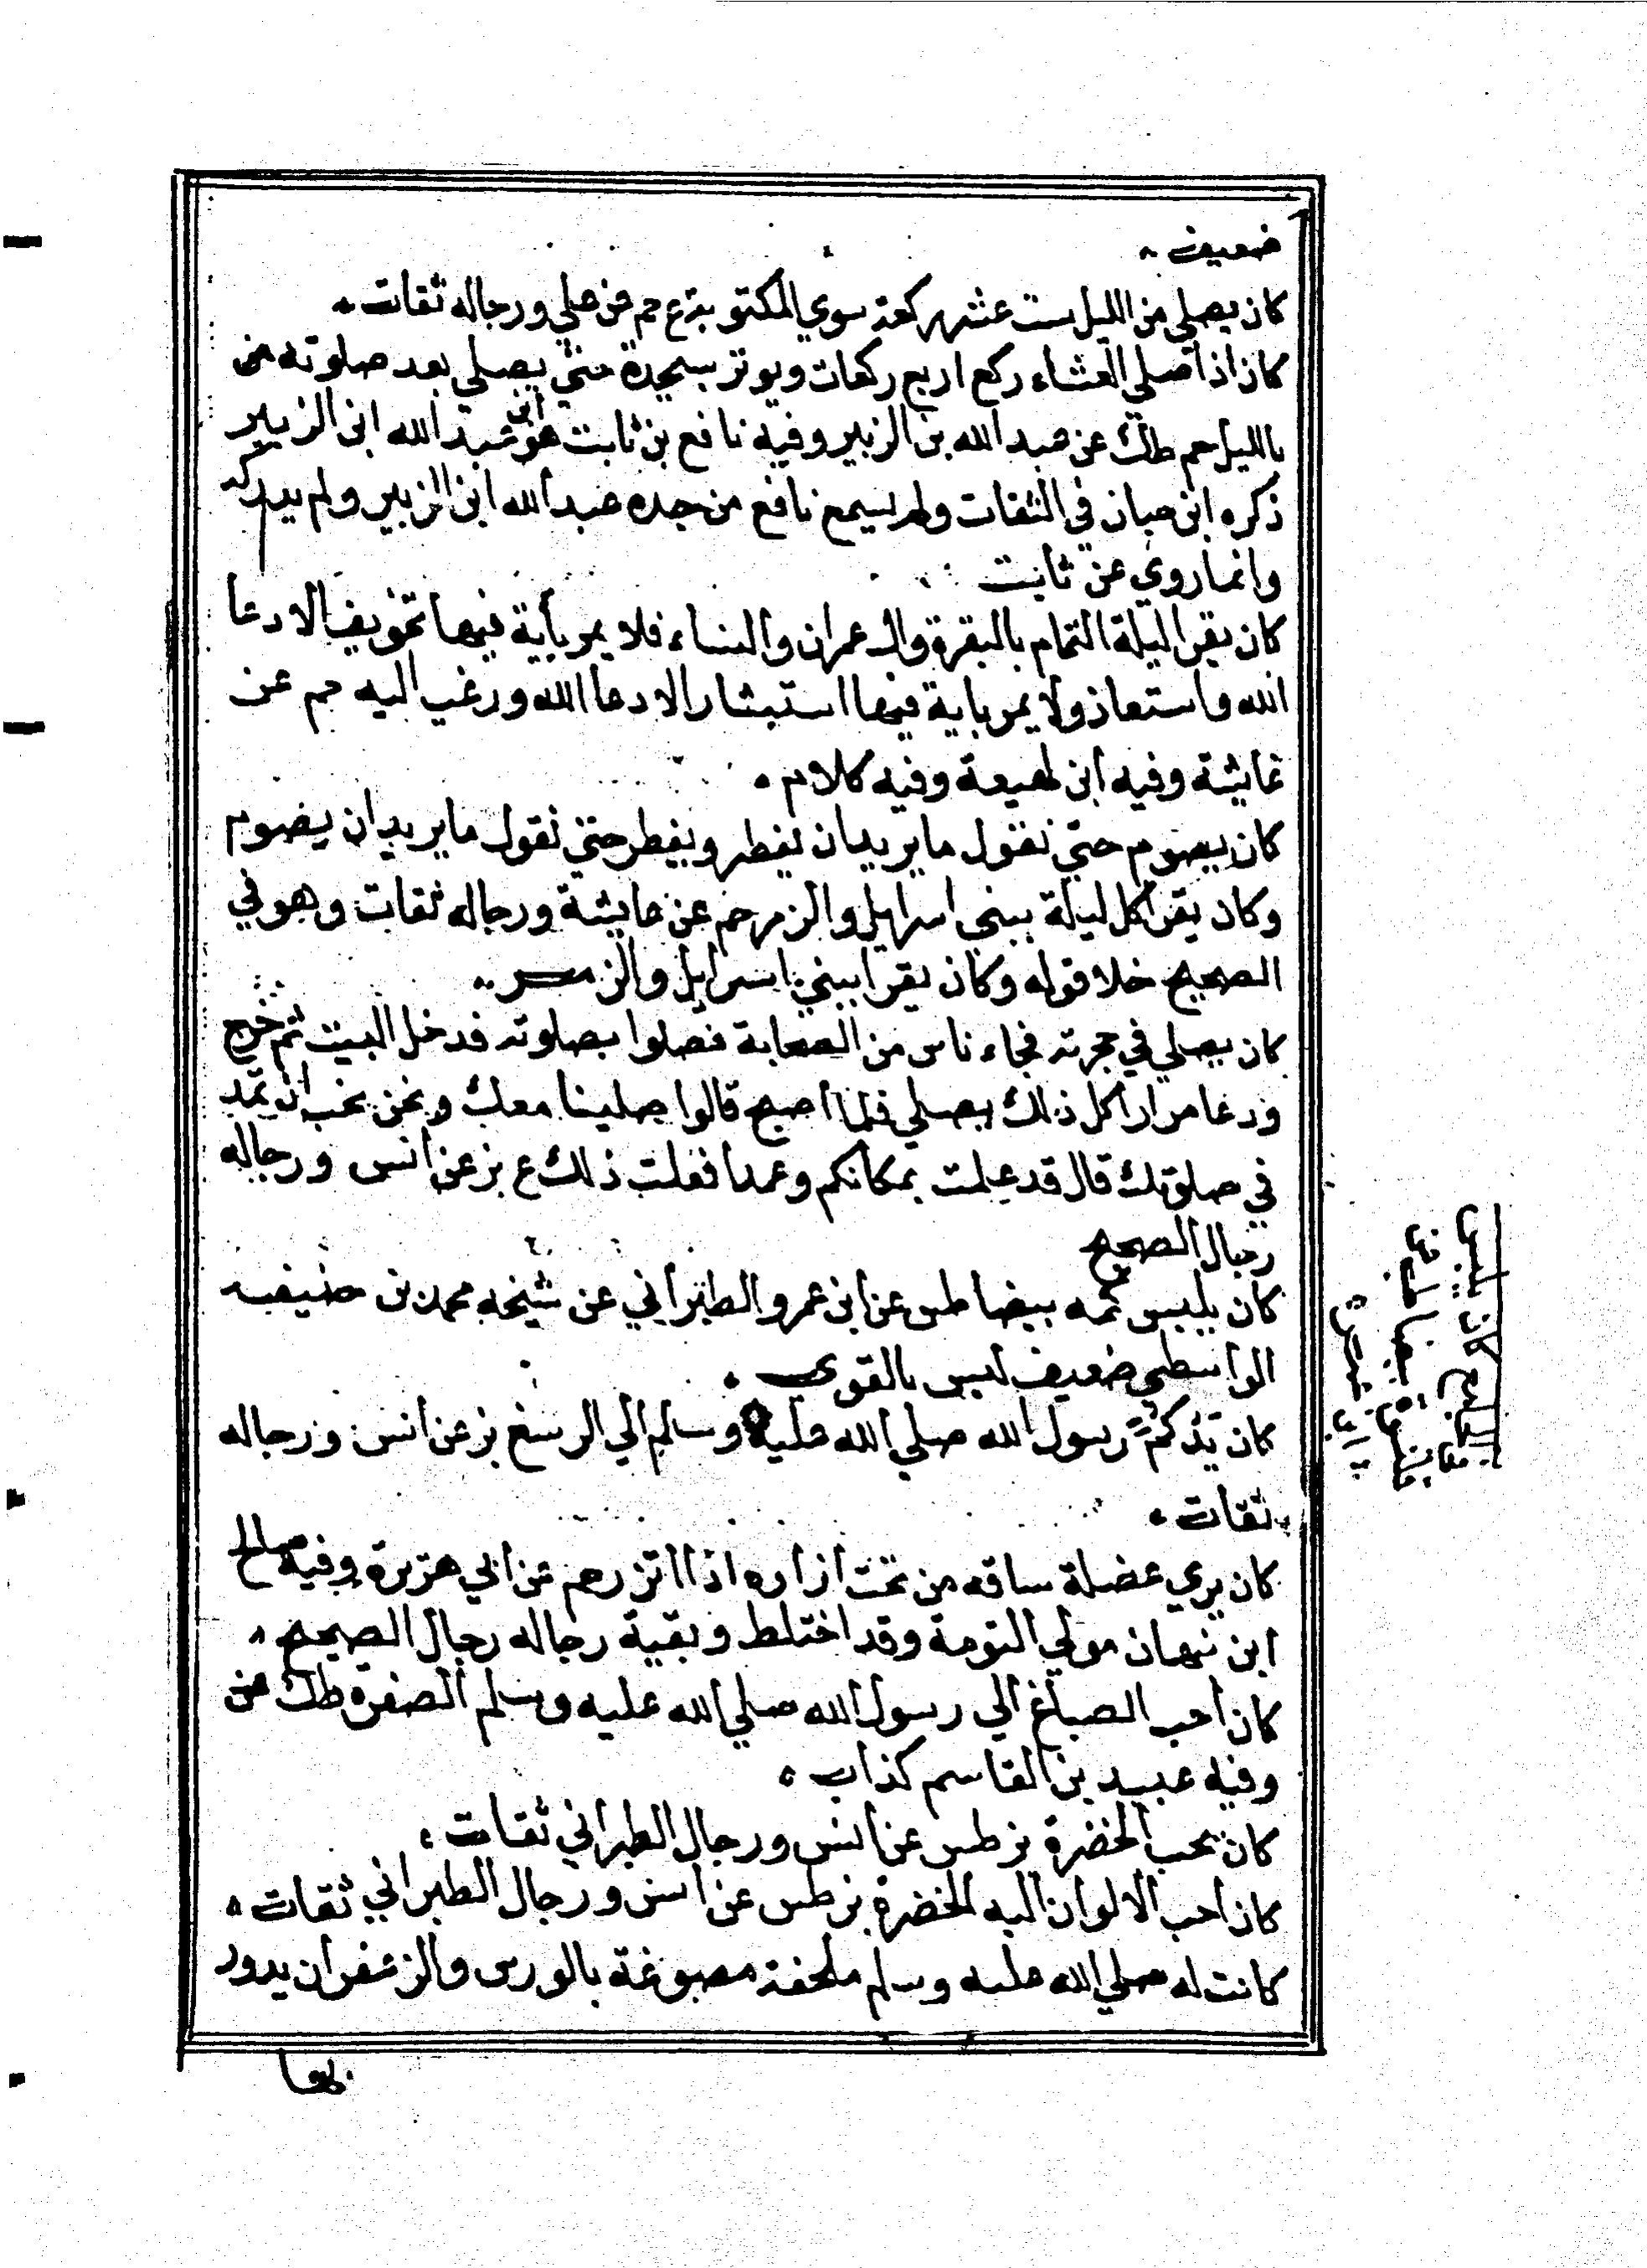 ضعيف
كان يصلي من الليل ست عشر ركعة سوي المكتوبة ع حم عن علي ورجاله ثقات
كان اذا صلي العشاء ركع اربع ركعات ويوتر بسجدة حتي يصلي بعد صلوته من
بالليل حم طك عن عبد الله بن الزبير وفيه نافع بن ثابت عن عبد الله ابن الزبير
ذكره ابن حبان في الثقات ولم يسمع نافع من جده عبد الله ابن الزبير ولم يدركه
وانما روي عن ثابت
كان يقرا ليلة التمام بالبقرة وال عمران والنساء فلا يمر بأية فيها تخويف الا دعا
الله واستعاذ ولا يمر باية فيها استبشار الا دعا الله ورغب اليه حم عن
عايشة وفيه ابن لهيعة وفيه كلام
كان يصوم حتي نقول ما يريد ان يفطر ويفطر حتي نقول ما يريد ان يصوم
وكان يقرا كل ليلة ببني اسرايل والزمر حم عن عايشة ورجاله ثقات وهو في
الصحيح خلا قوله وكان يقرا ببني اسرايل والزمر
كان يصلي في حجرته فجاء ناس من الصحابة فصلوا بصلوته فدخل البيت ثم خرج
ودعا مرارا كل ذلك يصلي فلما اصبح قالوا صلينا معك ونحن نحب ان تمد
في صلوتك قال قد علمت بمكانكم وعمدا فعلت ذلك ع بز عن انس ورجاله
رجال الصحيح
كان يلبس كمه بيضا طس عن ابن عمر والطبراني عن شيخه محمد بن حنيفه
الواسطي ضعيف ليس بالقوي
كان يد كم رسول الله صلي الله عليه وسلم الي الرسغ بز عن انس ورجاله
ثقات
كان يري عضلة ساقه من تحت ازاره اذا اتزر حم عن ابي هريرة وفيه صالح
ابن نبهان مولي التومة وقد اختلط وبقية رجاله رجال الصحيح
كان احب الصباغ الي رسول الله صلي الله عليه وسلم الصفره طك عن
وفيه عبيد بن القاسم كذاب
كان يحب الخضرة بز طس عن انس ورجال الطبراني ثقات
كان احب الالوان اليه الخضرة بز طس عن انس ورجال الطبراني ثقات
كانت له صلي الله عليه وسلم ملحفة مصبوغة بالورس والزعفران يدور
بها
كان يلبس